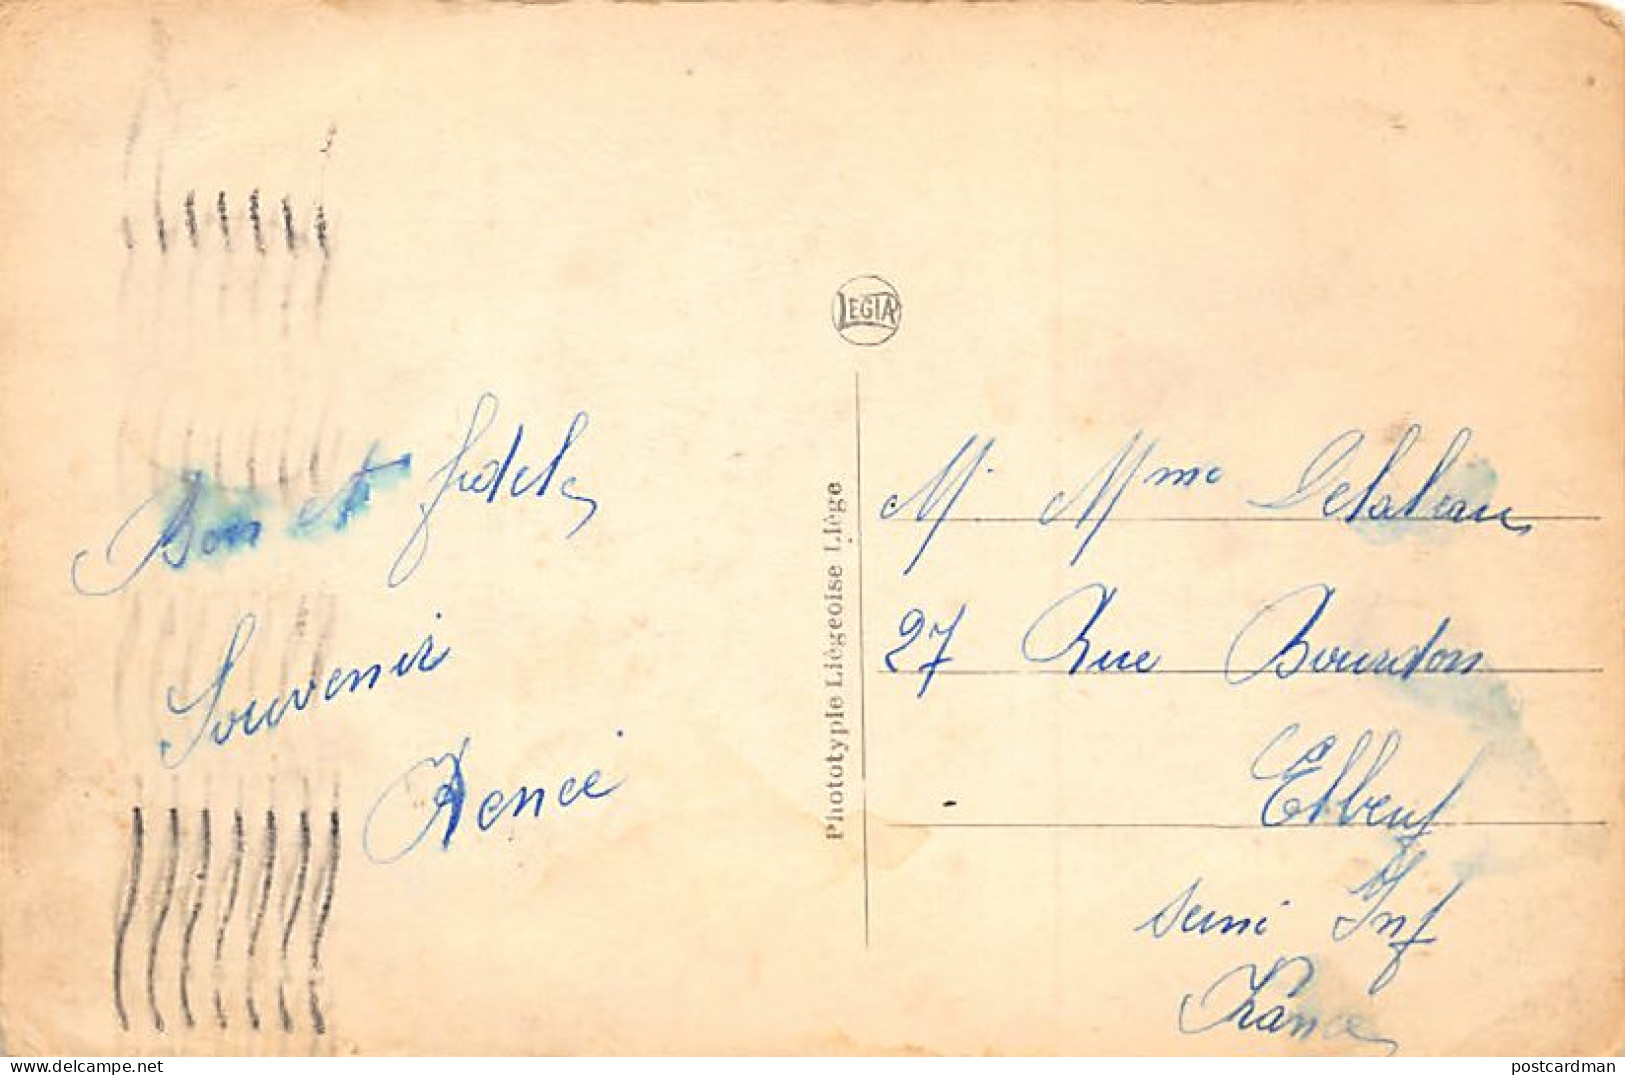 Bon et fidele
Souvenir
Renee
LEGIA
Phototypie Liégeoise Liège
M. Mme
27 Rue Bourdon
Elbeuf
Seine Inf
France
www.delcampe.net
postcardman